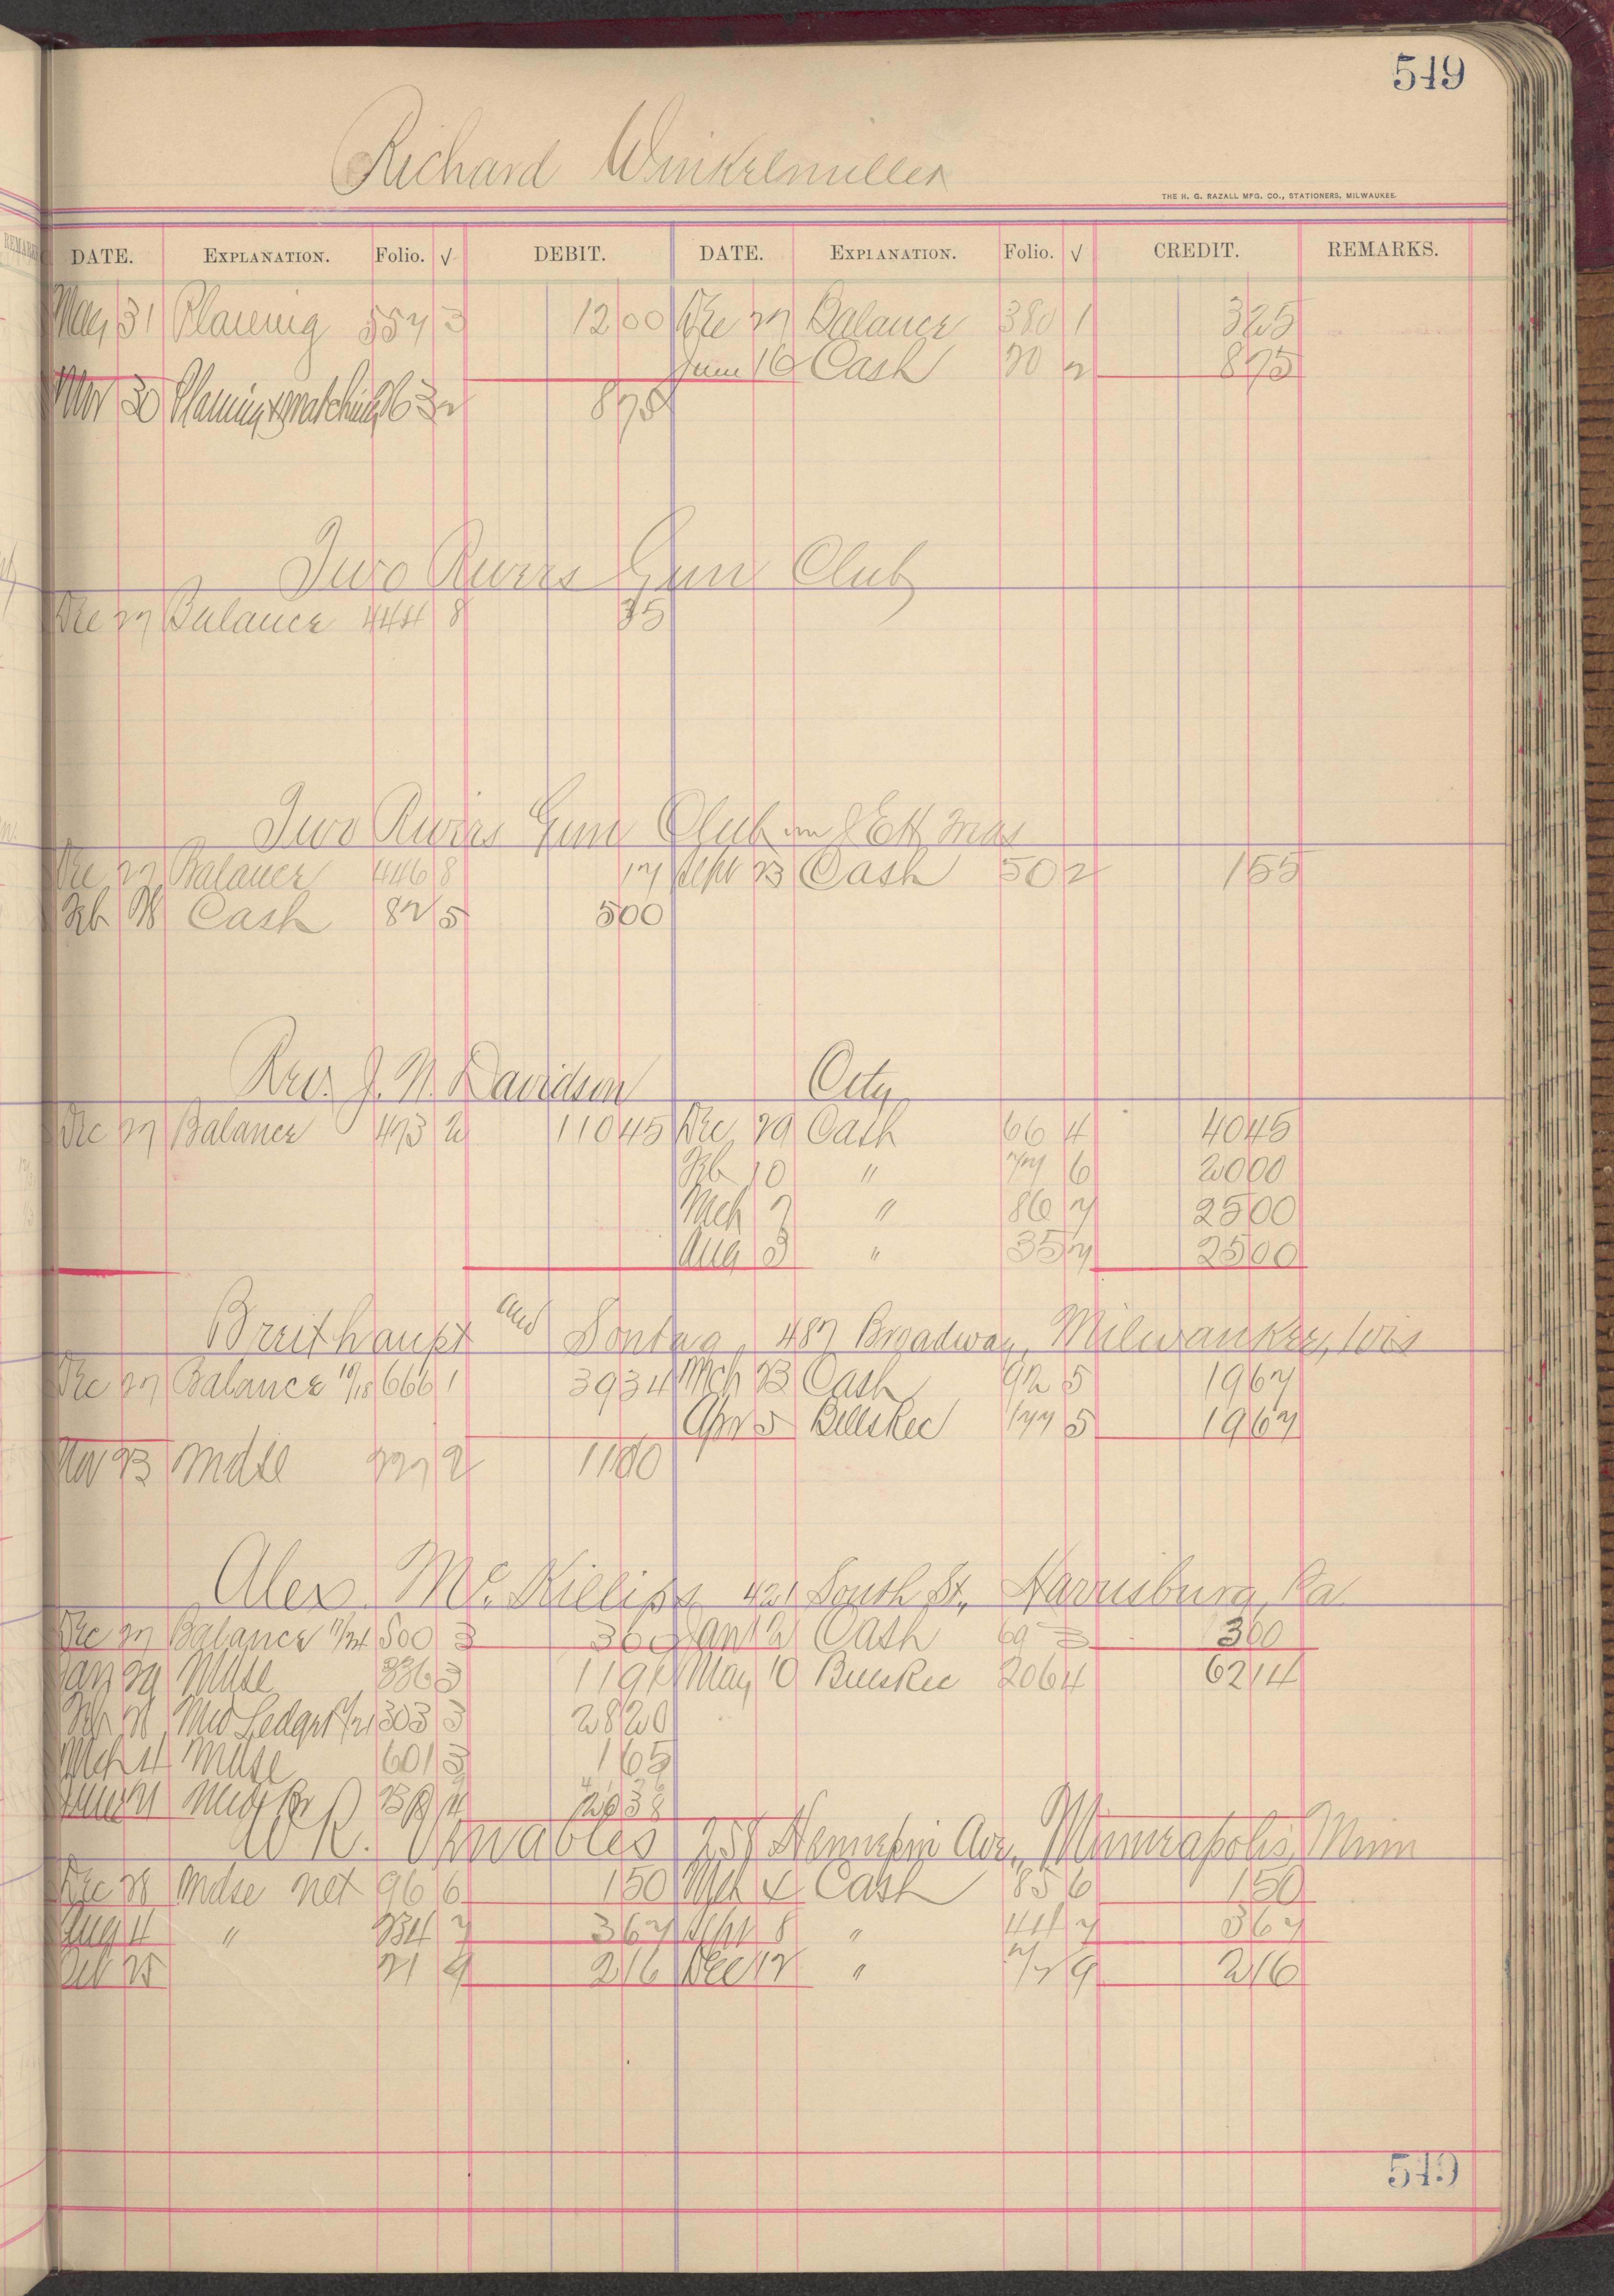 549
Richard Winkelmiller
THE H. G. RAZALL MFG. CO., STATIONERS, MILWAUKEE.
DATE. EXPLANATION. Folio. √ DEBIT. DATE. EXPLANATION. Folio. √ CREDIT. REMARKS.
May 31 Planing 557 3 1200 Dec 27 Balance 380 1 325
June 16 Cash 20 2 875
Nov 30 Planing & matching 263 2 875
Two Rivers Gun Club
Dec 27 Balance 444 8 35
Two Rivers Gun Club
Dec 27 Balance 446 8 17 Sept 23 Cash 50 2 155
Feb 28 Cash 82 5 500
Rev. J. N. Davidson City
Dec 27 Balance 473 2 11045 Dec 29 Cash 66 4 4045
Feb 10 " 77 6 2000
Mch 7 " 86 7 2500
Aug 3 " 35 7 2500
Breithaupt and Sontag, 487 Broadway, Milwaukee, Wis
Dec 27 Balance 10/18 666 1 3934 Mch 23 Cash 92 5 1967
Apr 5 Bills Rec 177 5 1967
Nov 23 Mdse 227 2 1180
Alex. McKillips 421 South St., Harrisburg, Pa.
Dec 27 Balance 11/24 500 3 360 Jan 12 Cash 69 3 360
Jan 29 Mdse 336 3 1194 May 10 Bills Rec 206 4 6214
Feb 28 Mdse Ledger 303 3 2820
Mch 4 Mdse 601 3 165
W. R. Venables 257 Hennepin Ave., Minneapolis, Minn
Dec 28 Mdse net 96 6 150 Mch 4 Cash 85 6 150
Aug 4 " 234 7 367 Sept 8 " 44 7 367
Oct 25 21 9 216 Dec 12 " 9 216
549